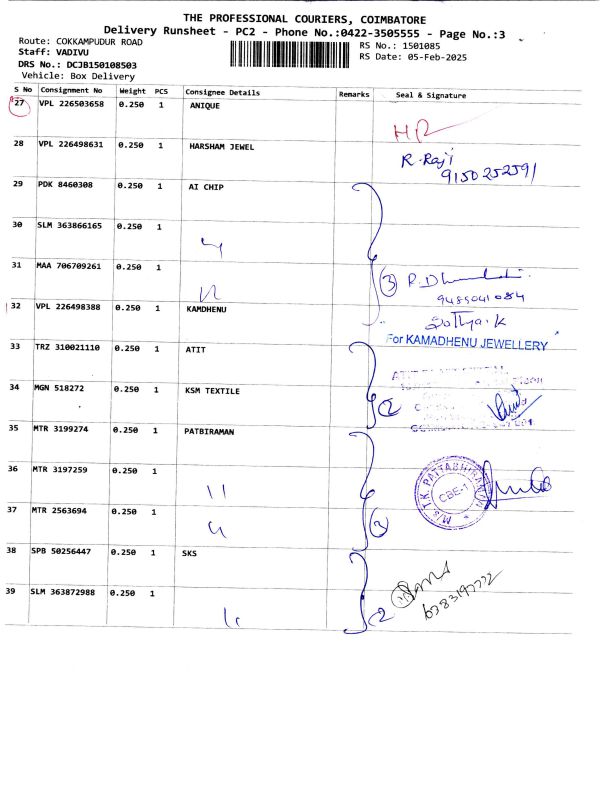 THE PROFESSIONAL COURIERS, COIMBATORE
Delivery Runsheet - PC2 - Phone No.:0422-3505555 - Page No.:3
Route: COKKAMPUDUR ROAD
Staff: VADIVU
DRS No.: DCJB150108503
Vehicle: Box Delivery
RS No.: 1501085
RS Date: 05-Feb-2025
S No Consignment No Weight PCS Consignee Details Remarks Seal & Signature
27 VPL 226503658 0.250 1 ANIQUE
28 VPL 226498631 0.250 1 HARSHAM JEWEL
R. Raji
9150252591
29 PDK 8460308 0.250 1 AI CHIP
30 SLM 363866165 0.250 1
31 MAA 706709261 0.250 1
3
9485041084
32 VPL 226498388 0.250 1 KAMDHENU
Sathya.K
For KAMADHENU JEWELLERY
33 TRZ 310021110 0.250 1 ATIT
34 MGN 518272 0.250 1 KSM TEXTILE
2
35 MTR 3199274 0.250 1 PATBIRAMAN
36 MTR 3197259 0.250 1
M/S T.K. PATTABHIRAMAN
CBE-1
37 MTR 2563694 0.250 1
3
38 SPB 50256447 0.250 1 SKS
39 SLM 363872988 0.250 1
2